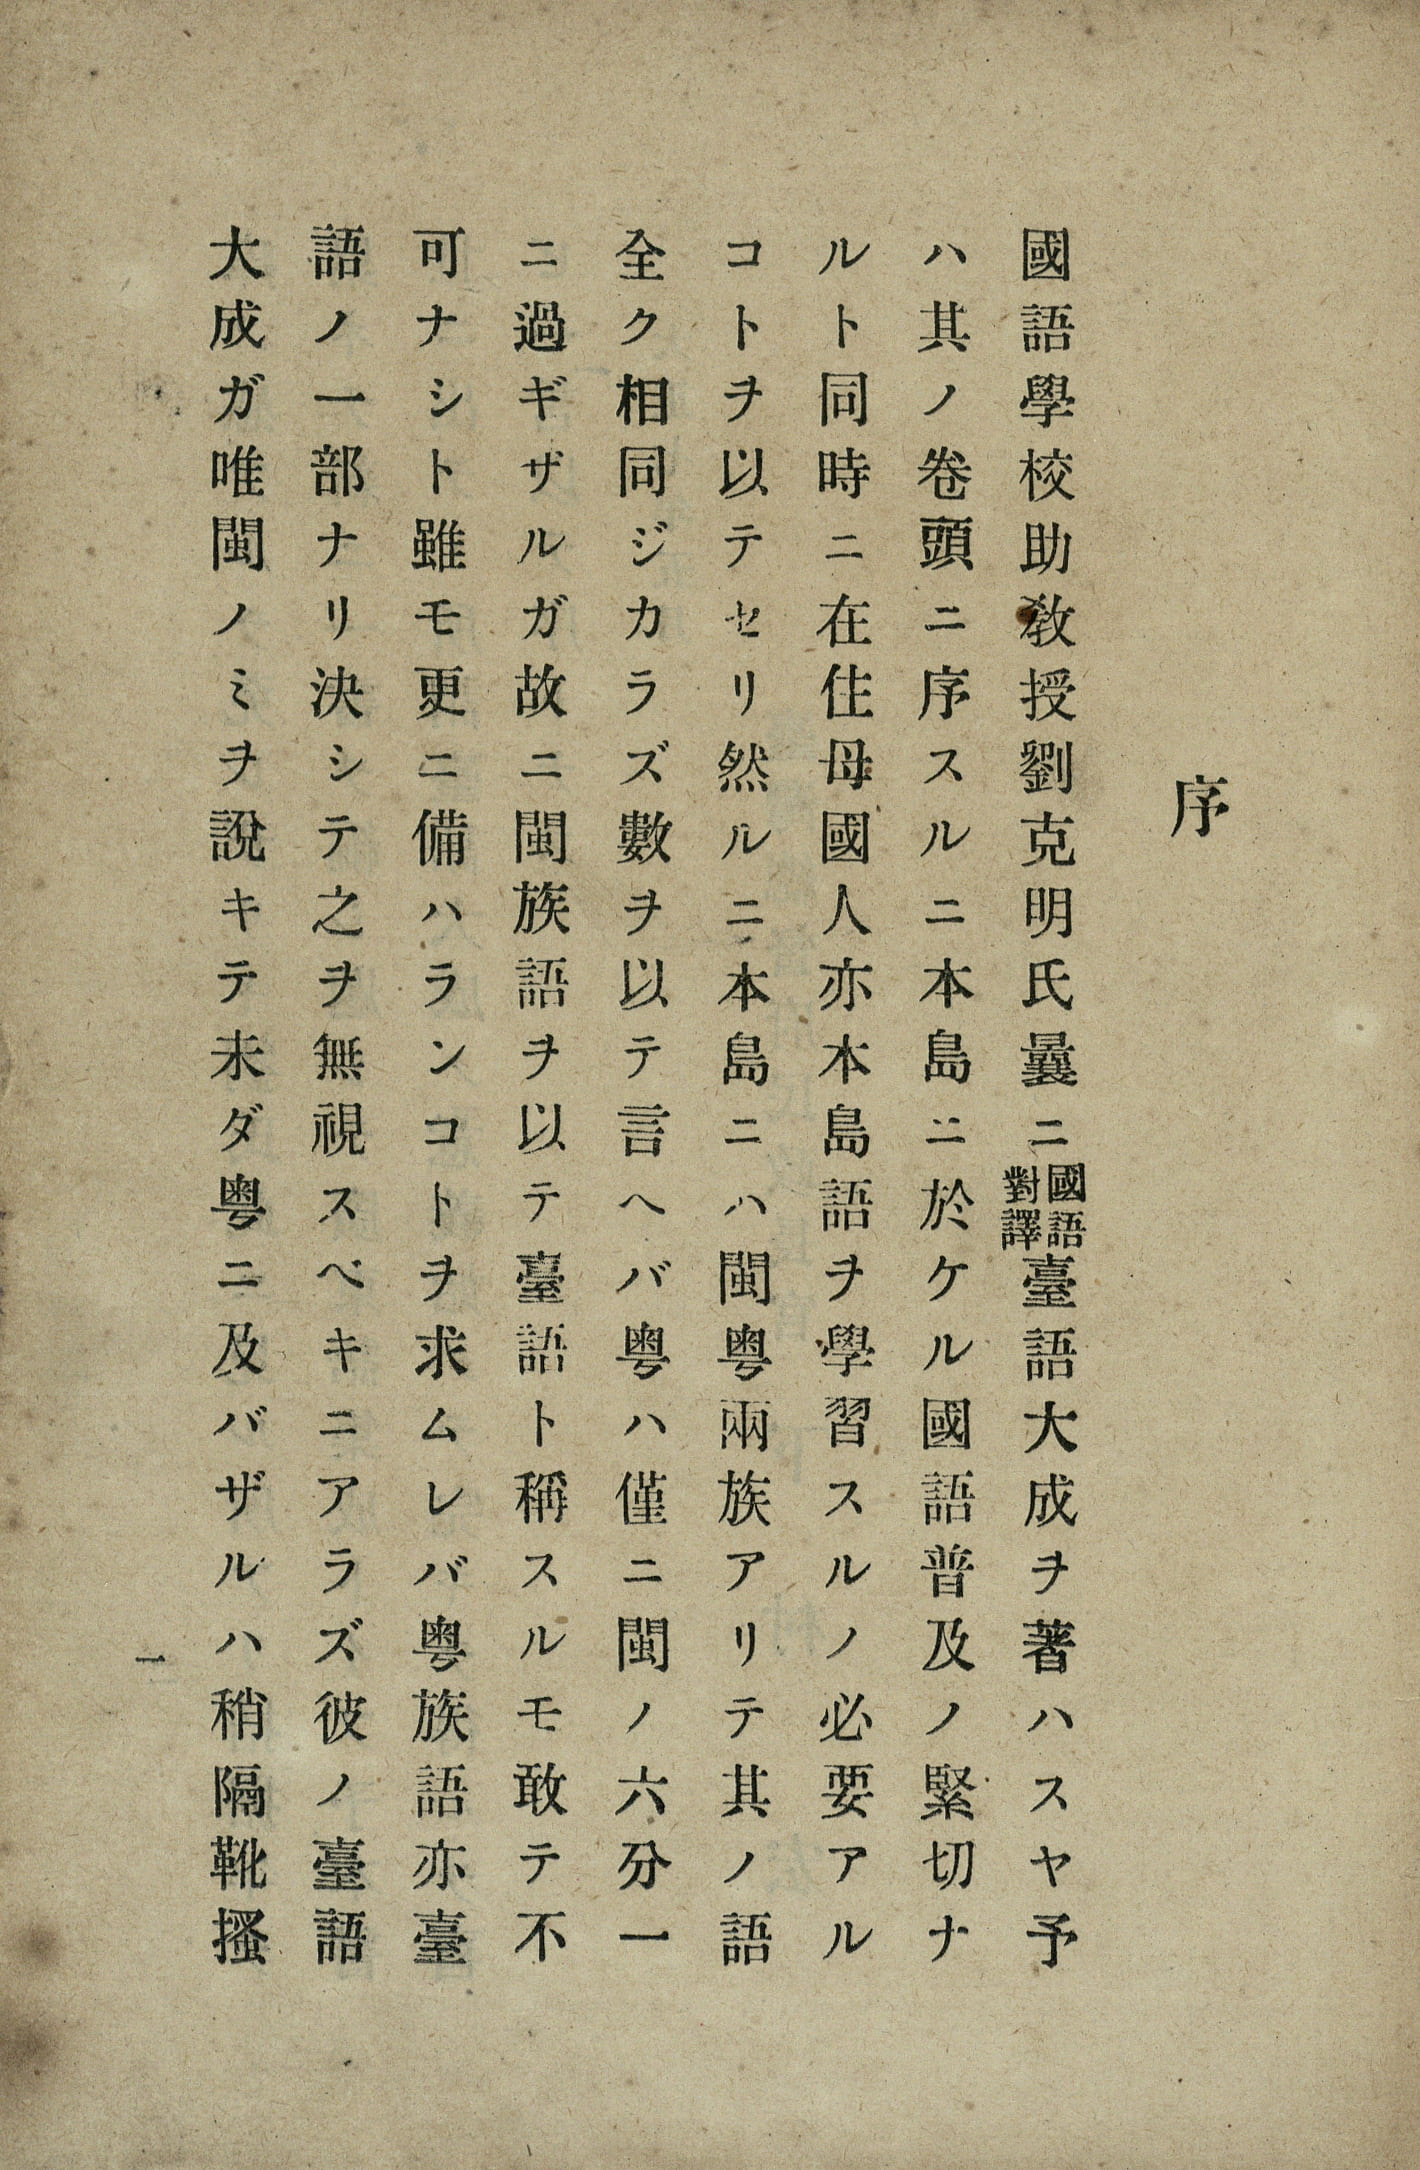 序
國語學校助敎授劉克明氏曩ニ國語對譯臺語大成ヲ著ハスヤ予
ハ其ノ卷頭ニ序スルニ本島ニ於ケル國語普及ノ緊切ナ
ルト同時ニ在住母國人亦本島語ヲ學習スルノ必要アル
コトヲ以テセリ然ルニ本島ニハ閩粤兩族アリテ其ノ語
全ク相同ジカラズ數ヲ以テ言ヘバ粤ハ僅ニ閩ノ六分一
ニ過ギザルガ故ニ閩族語ヲ以テ臺語ト稱スルモ敢テ不
可ナシト雖モ更ニ備ハランコトヲ求ムレバ粤族語亦臺
語ノ一部ナリ決シテ之ヲ無視スベキニアラズ彼ノ臺語
大成ガ唯閩ノミヲ說キテ未ダ粤ニ及バザルハ稍隔靴搔
一